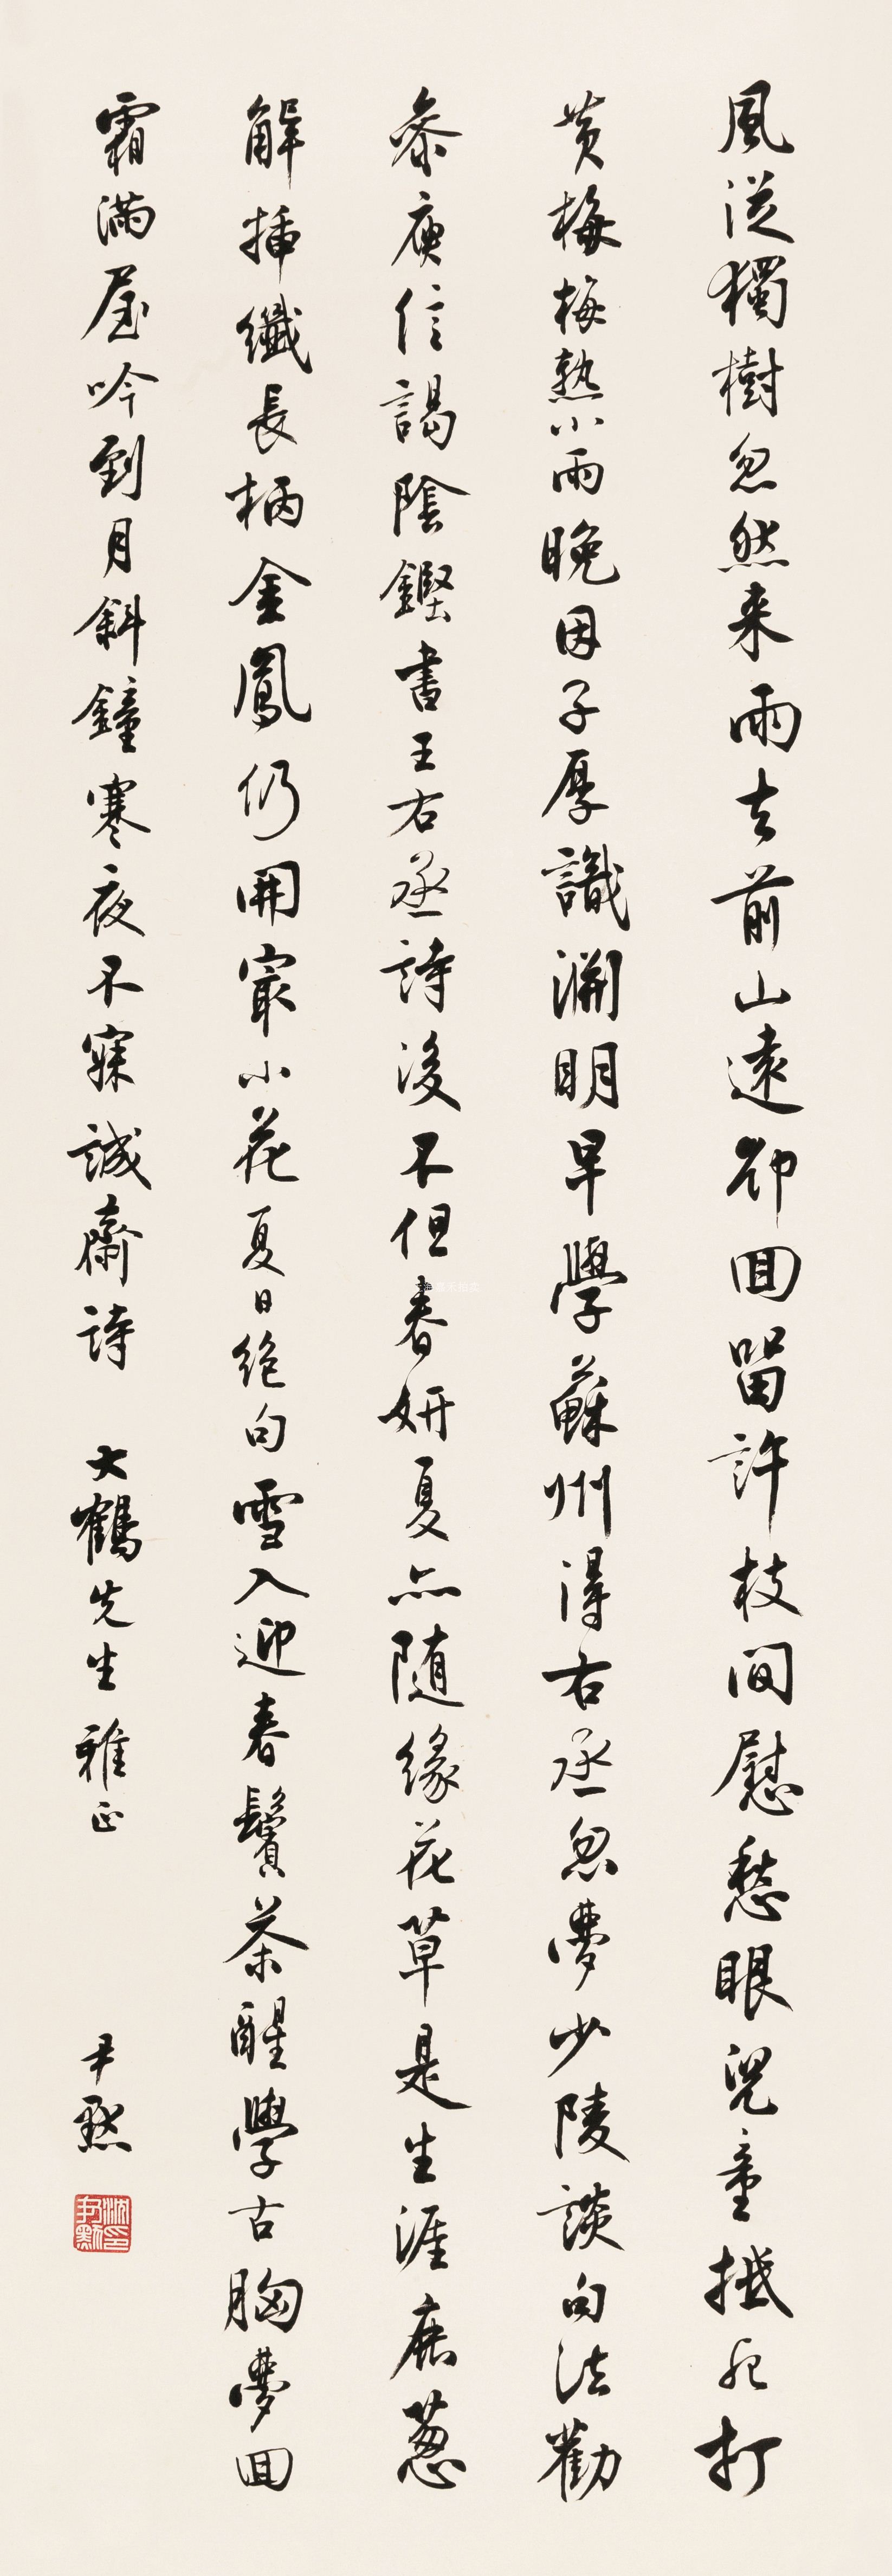 風従獨樹忽然来雨去前山遠卻回留許枝間慰愁眼兒童抵死打
黄梅梅熟小雨晚因子厚識淵明早學蘇州得右丞忽夢少陵談句法勸
參庾信謁陰鏗書王右丞詩後不但春妍夏亦随緣花草是生涯鹿葱
解插纖長柄金鳳仍開最小花夏日絶句雪入迎春鬢茶醒學古胸夢回
霜滿屋吟到月斜鐘寒夜不寐誠齋詩 大鶴先生雅正
尹默
沈尹默印